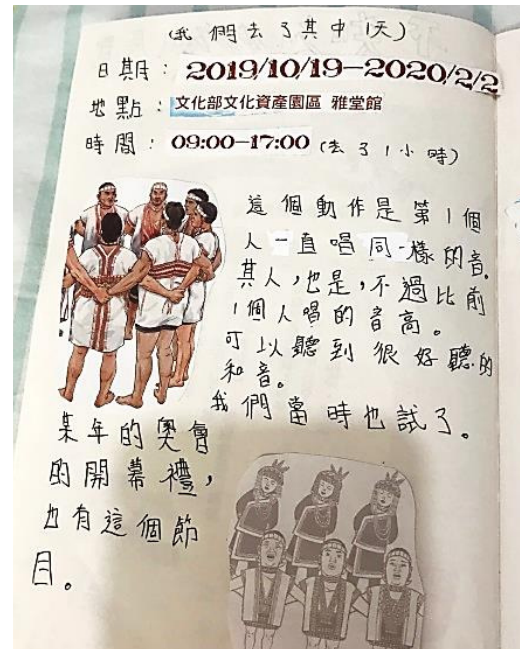 (我們去了其中1天)
日期：2019/10/19-2020/2/2
地點：文化部文化資產園區 雅堂館
時間：09:00-17:00 (去了1小時)
這個動作是第1個
人一直唱同一樣的音,
其人,也是,不過比前
1個人唱的音高。
可以聽到很好聽的
和音。
我們當時也試了。
某年的奧會
的開幕禮,
也有這個節
目。